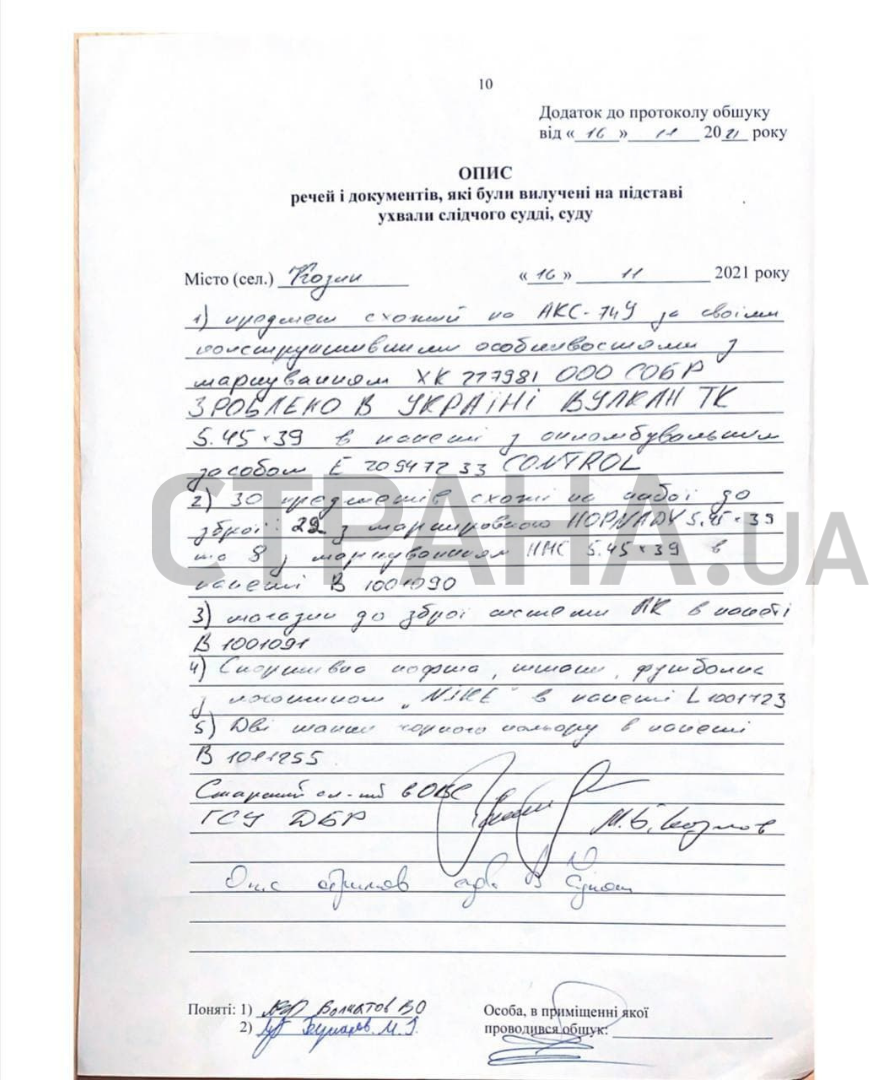 10
Додаток до протоколу обшуку
від «16» 11 2021 року
ОПИС
речей і документів, які були вилучені на підставі
ухвали слідчого судді, суду
Місто (сел.) Козин «16» 11 2021 року
1) предмет схожий на АКС-74У за своїми
конструктивними особливостями з
маркуванням ХК 277981 ООО СОБР
ЗРОБЛЕНО В УКРАЇНІ ВУЛКАН ТК
5.45×39 в пакеті з опломбувальним
засобом Е 20947233 CONTROL
2) 30 предметів схожі на набої до
зброї: 22 з маркировкою HORNADY 5.45×39
та 8 з маркуванням НМС 5.45×39 в
пакеті В 1001090
СТРАНА.UA
3) магазин до зброї системи АК в пакеті
В 1001091
4) Спортивна кофта, штани, футболка
з логотипом „NIKE" в пакеті L1001723
5) Дві шапки чорного кольору в пакеті
В 1011255
Старший сл-ий в ОВС
ГСУ ДБР М.Б. Козлов
Опис отримав адв. В
Поняті: 1) ВО
2) М.
Особа, в приміщенні якої
проводився обшук: